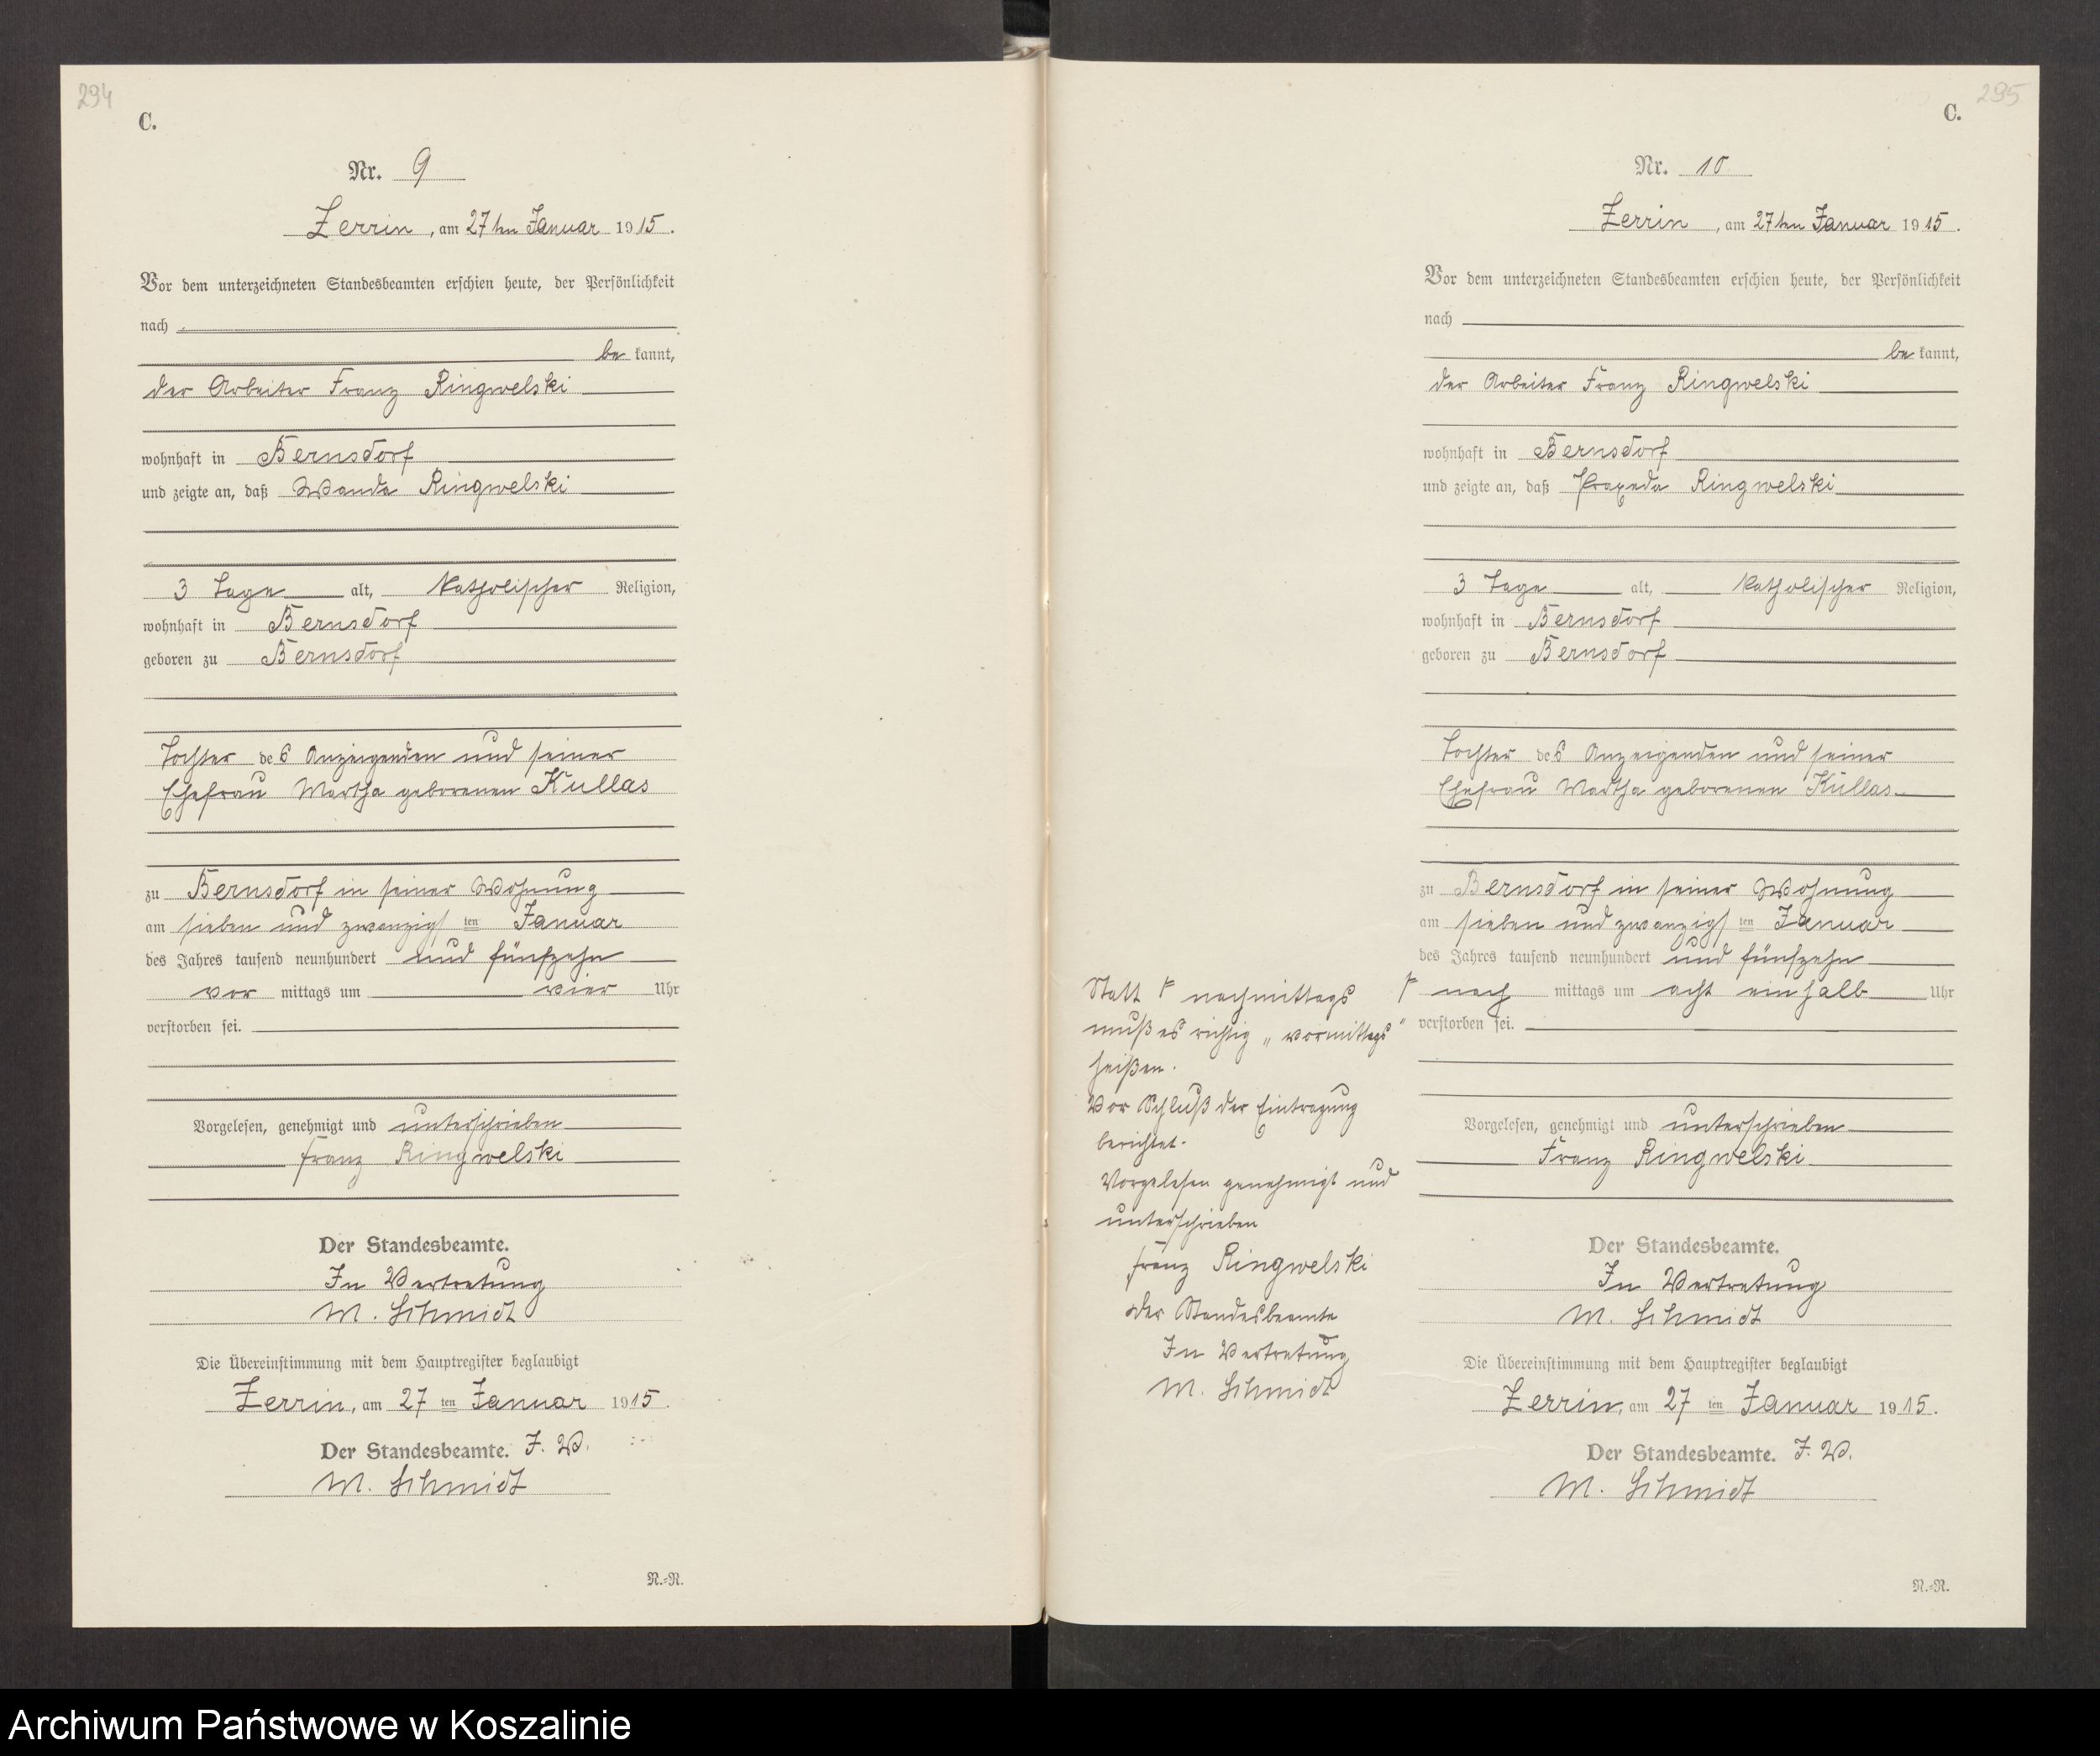 294
C.
Nr. 9
Zerrin, am 27ten Januar 1915.
Vor dem unterzeichneten Standesbeamten erschien heute, der Persönlichkeit
nach
be kannt,
der Arbeiter Franz Ringwelski
wohnhaft in Bernsdorf
und zeigte an, daß Wanda Ringwelski
3 Tage alt, katholischer Religion,
wohnhaft in Bernsdorf
geboren zu Bernsdorf
Tochter des Anzeigenden und seiner
Ehefrau Martha geborenen Kullas
zu Bernsdorf in seiner Wohnung
am sieben und zwanzigsten Januar
des Jahres tausend neunhundert und fünfzehn
vor mittags um vier Uhr
verstorben sei.
Vorgelesen, genehmigt und unterschrieben
Franz Ringwelski
Der Standesbeamte.
In Vertretung
M. Schmidt
Die Übereinstimmung mit dem Hauptregister beglaubigt
Zerrin, am 27 ten Januar 1915.
Der Standesbeamte. I. V.
M. Schmidt
N.-R.
295
C.
Nr. 10
Zerrin, am 27ten Januar 1915.
Vor dem unterzeichneten Standesbeamten erschien heute, der Persönlichkeit
nach
be kannt,
der Arbeiter Franz Ringwelski
wohnhaft in Bernsdorf
und zeigte an, daß Praxeda Ringwelski
3 Tage alt, katholischer Religion,
wohnhaft in Bernsdorf
geboren zu Bernsdorf
Tochter des Anzeigenden und seiner
Ehefrau Martha geborenen Kullas
zu Bernsdorf in seiner Wohnung
am sieben und zwanzigsten Januar
des Jahres tausend neunhundert und fünfzehn
nach mittags um acht ein halb Uhr
verstorben sei.
Statt nachmittags
muß es richtig „vormittags"
heißen.
Vor Schluß der Eintragung
berichtet.
Vorgelesen genehmigt und
unterschrieben
Franz Ringwelski
Der Standesbeamte
In Vertretung
M. Schmidt
Vorgelesen, genehmigt und unterschrieben
Franz Ringwelski
Der Standesbeamte.
In Vertretung
M. Schmidt
Die Übereinstimmung mit dem Hauptregister beglaubigt
Zerrin, am 27 ten Januar 1915.
Der Standesbeamte. I. V.
M. Schmidt
N.-R.
Archiwum Państwowe w Koszalinie